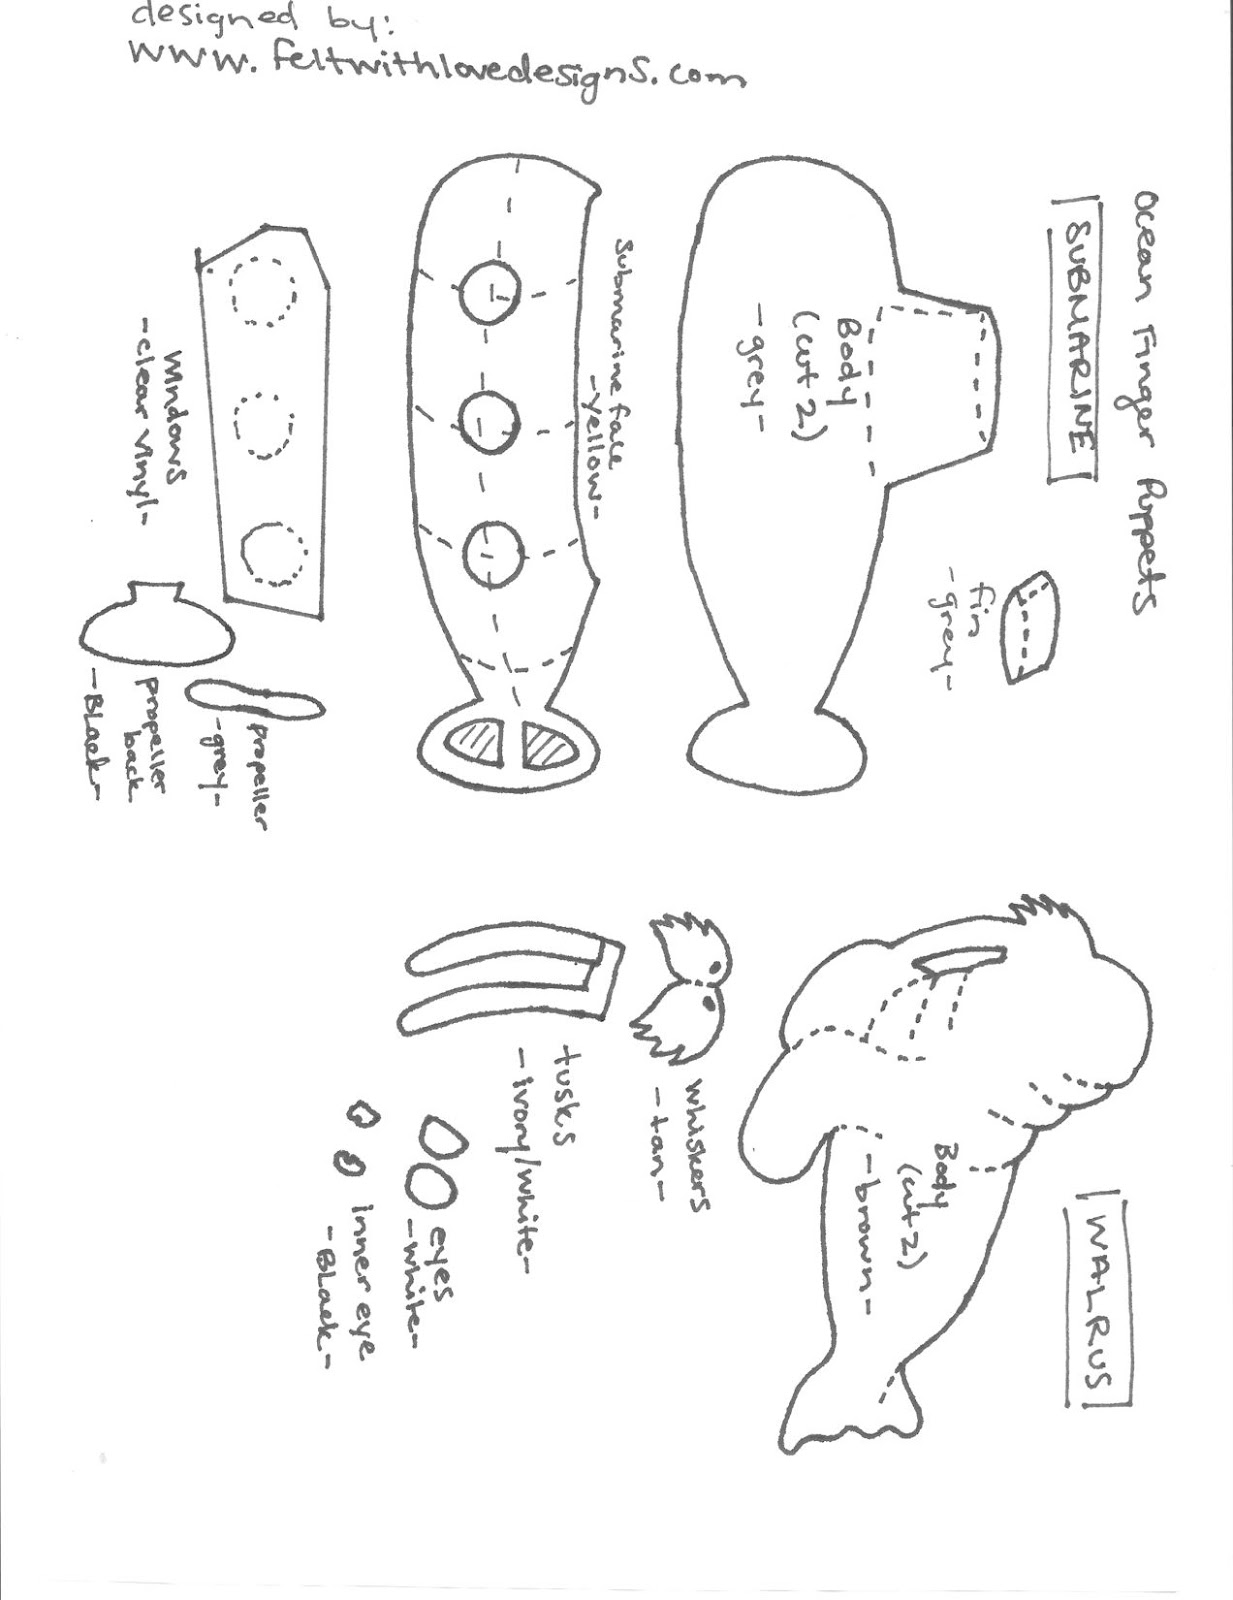 designed by:
www.feltwithlovedesigns.com
Ocean Finger Puppets
SUBMARINE
fin
-grey-
Body
(cut 2)
-grey-
Submarine face
-yellow-
Windows
-clear vinyl-
propeller
-grey-
propeller
back
-BLack-
WALRUS
Body
(cut 2)
-brown-
whiskers
-tan-
tusks
-ivory/white-
eyes
-white-
inner eye
-BLack-